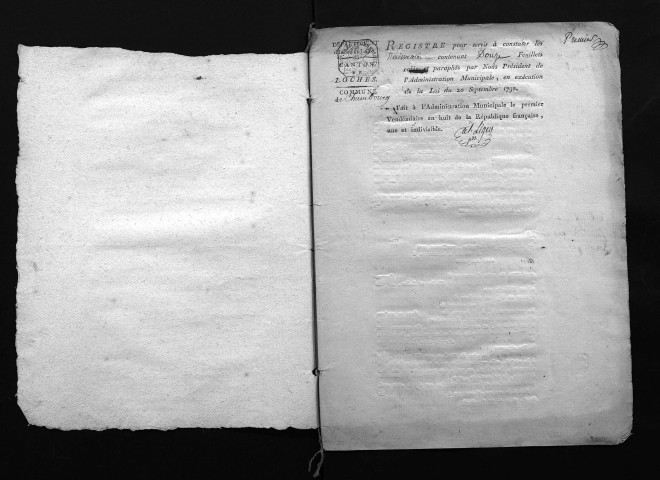 Premier
DÉPARTEMENT
CANTON
DE
LOCHES.
COMMUNE
de
REGISTRE pour servir à constater les
contenant Douze Feuillets
cottés et paraphés par Nous Président de
l'Administration Municipale, en exécution
de la Loi du 20 Septembre 1792.
Fait à l'Administration Municipale le premier
Vendémiaire an huit de la République française,
une et indivisible.